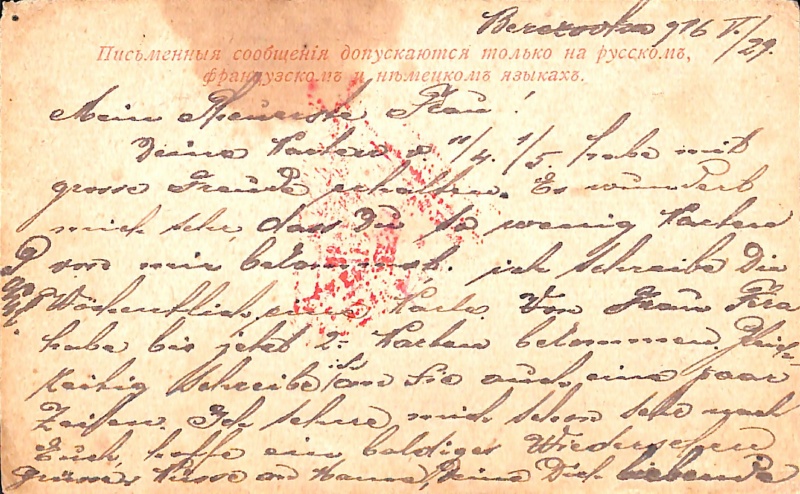 Berezowka 916 V./29.
Письменныя сообщенія допускаются только на русскомъ,
французскомъ и нѣмецкомъ языкахъ.
Mein Theuerste Frau!
Deine Karten v. 11/4. 1/5. habe mit
grosse Freude erhalten. Es wundert
mich sehr dass Du so wenig Karten
von mir bekommst. ich schreibe Dir
Wöchentlich eine Karte. Von Frau
habe bis jetzt 2 Karten bekommen. Gleich-
zeitig schreibe ich an Sie auch eine paar
Zeilen. Ich sehne mich schon sehr nach
Euch, hoffe ein baldiges Wiedersehen
grüsse Küsse an Hanna, Deine Dich liebende